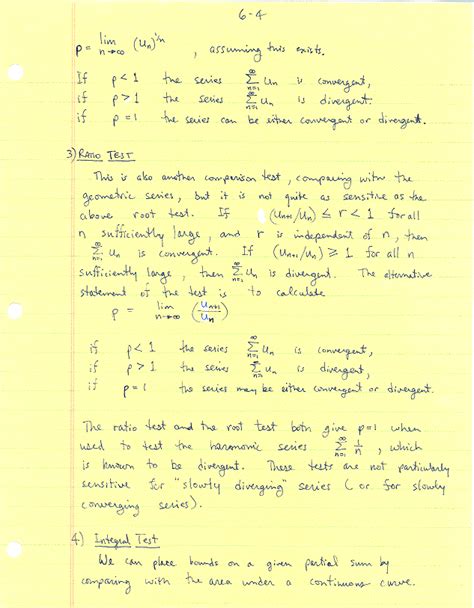 6-4
ρ = lim n→∞ (Un)^1/n , assuming this exists.
If ρ < 1 the series ∞ Σ n=1 Un is convergent,
If ρ > 1 the series ∞ Σ n=1 Un is divergent.
if ρ = 1 the series can be either convergent or divergent.
3) RATIO TEST
This is also another comparison test, comparing with the
geometric series, but it is not quite as sensitive as the
above root test. If (Un+1/Un) ≤ r < 1 for all
n sufficiently large, and r is independent of n, then
∞ Σ n=1 Un is convergent. If (Un+1/Un) ≥ 1 for all n
sufficiently large, then ∞ Σ n=1 Un is divergent. The alternative
statement of the test is to calculate
ρ = lim n→∞ (Un+1/Un)
if ρ < 1 the series ∞ Σ n=1 Un is convergent,
if ρ > 1 the series ∞ Σ n=1 Un is divergent,
if ρ = 1 the series may be either convergent or divergent.
The ratio test and the root test both give ρ=1 when
used to test the harmonic series ∞ Σ n=1 1/n , which
is known to be divergent. These tests are not particularly
sensitive for "slowly diverging" series (or for slowly
converging series).
4) Integral Test
We can place bounds on a given partial sum by
comparing with the area under a continuous curve.